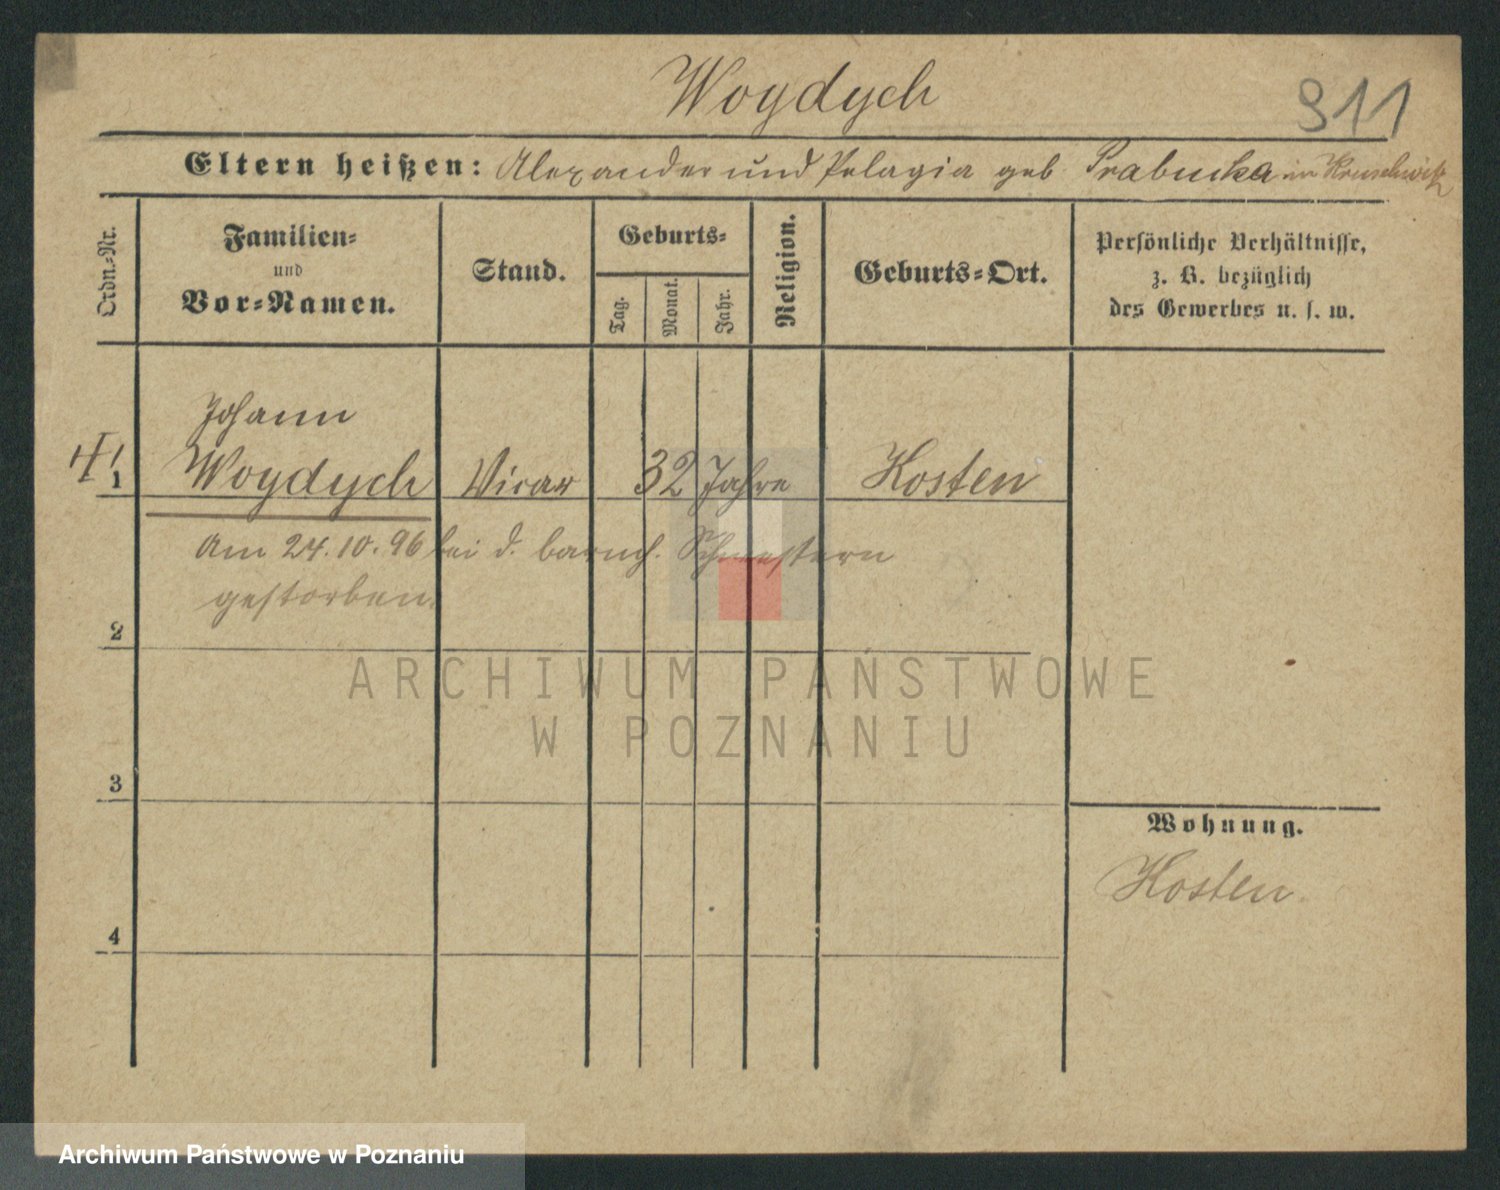 Woydych
911
Eltern heißen: Alexander und Pelagia geb Prabucka in Kruschwitz
Ordn.-Nr.
Familien-
und
Vor-Namen.
Stand.
Geburts-
Tag.
Monat.
Jahr.
Religion.
Geburts-Ort.
Persönliche Verhältnisse,
z. B. bezüglich
des Gewerbes u. s. w.
Johann
1 Woydych Vicar 32 Jahre Kosten
Am 24.10.96 bei d. barmh. Schwestern
gestorben.
2
ARCHIWUM PAŃSTWOWE
W POZNANIU
3
Wohnung.
Kosten.
4
Archiwum Państwowe w Poznaniu